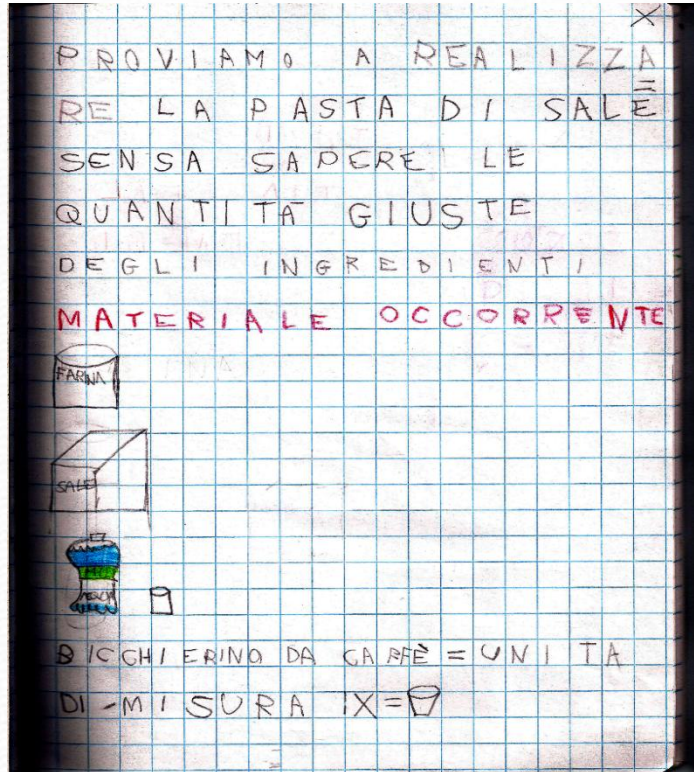 X
PROVIAMO A REALIZZA=
RE LA PASTA DI SALE
SENSA SAPERE LE
QUANTITÀ GIUSTE
DEGLI INGREDIENTI
MATERIALE OCCORRENTE
FARINA
SALE
ACQUA
BICCHIERINO DA CAFFÈ = UNITA
DI-MISURA 1X=